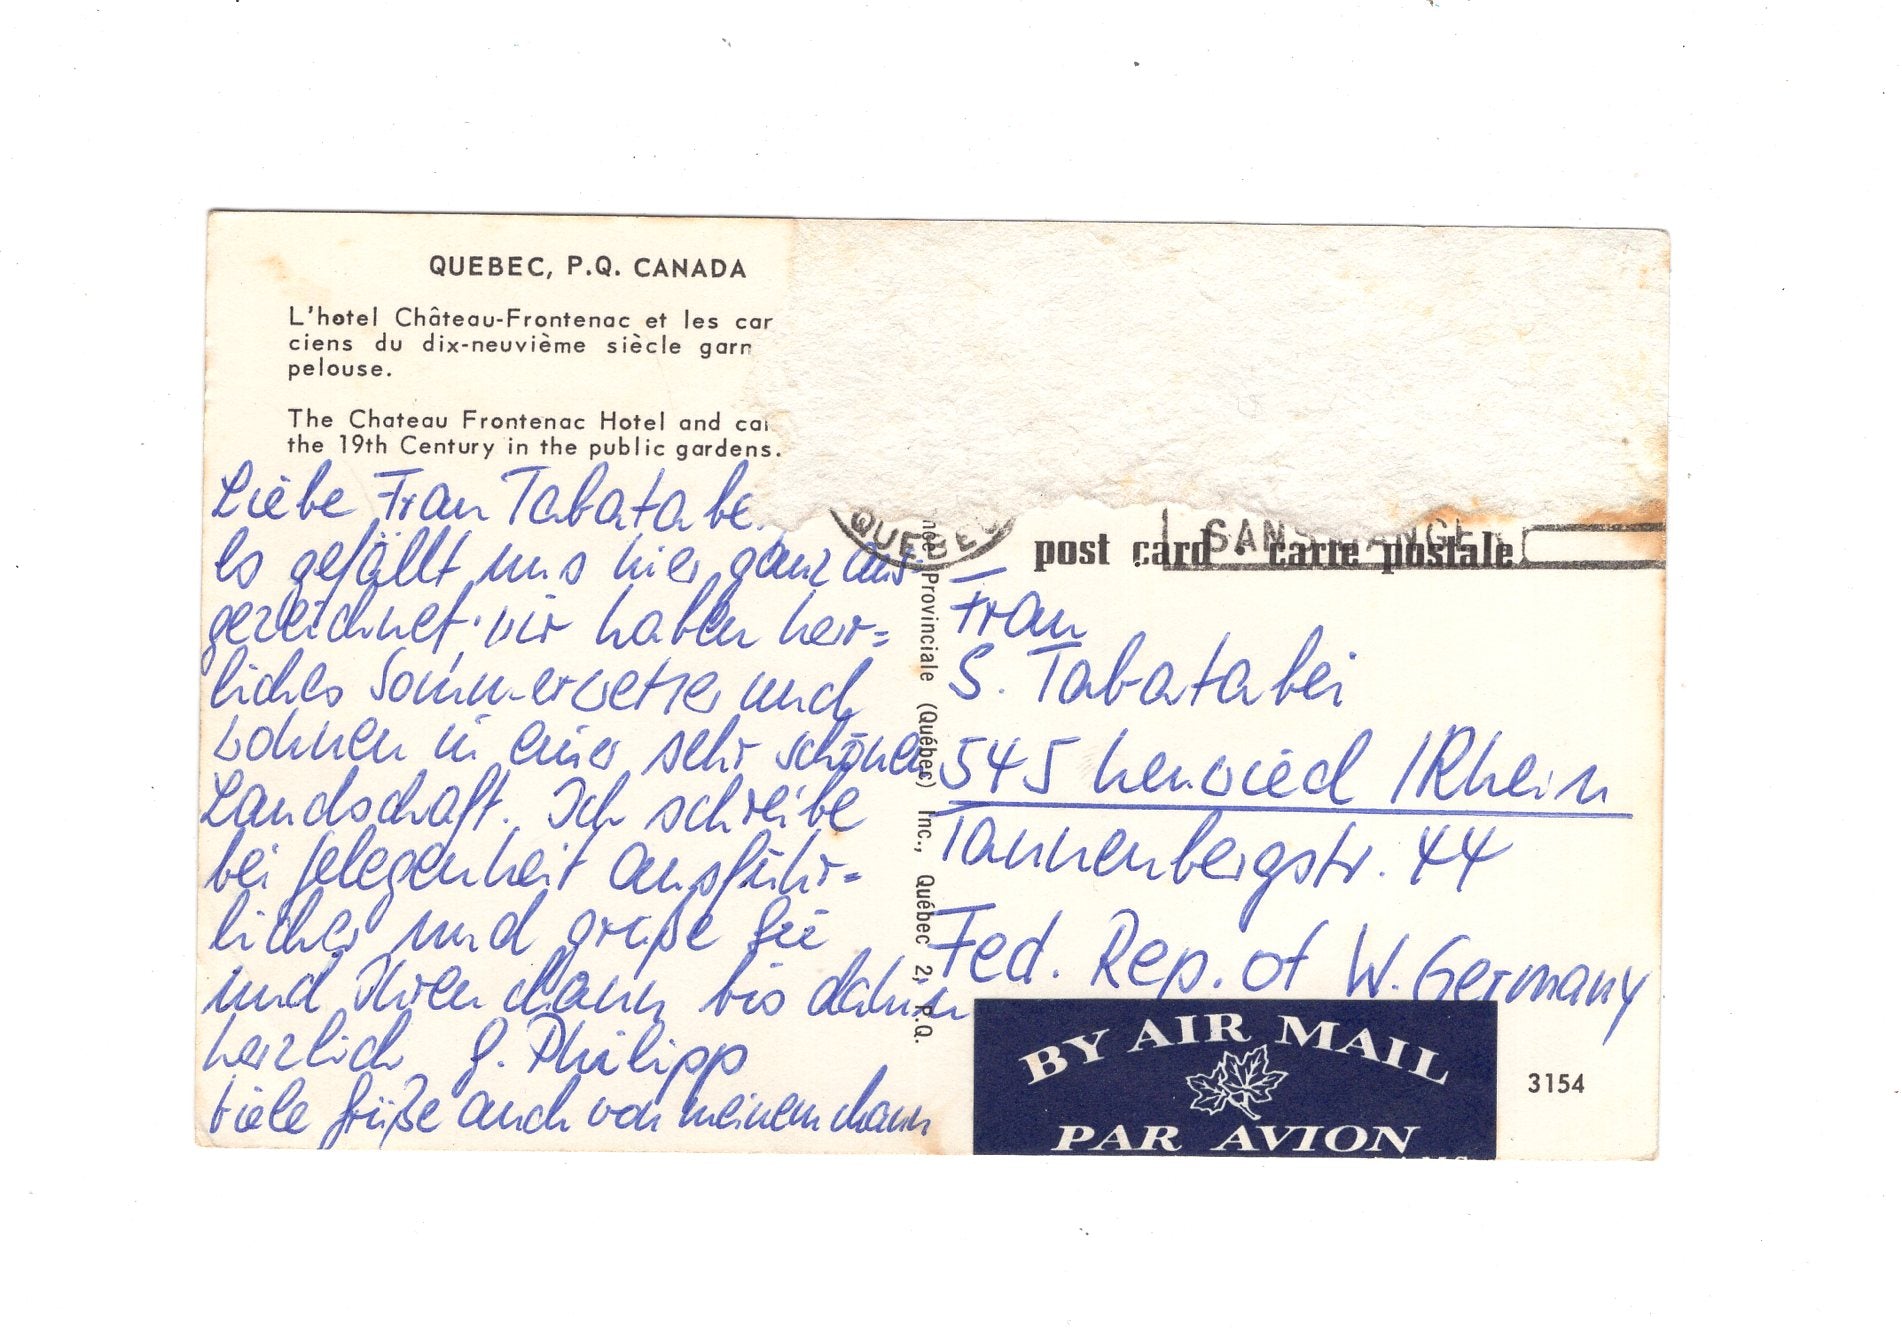 QUEBEC, P.Q. CANADA
L'hotel Château-Frontenac et les car
ciens du dix-neuvième siècle garn
pelouse.
The Chateau Frontenac Hotel and ca
the 19th Century in the public gardens.
Liebe Frau Tabatabe
Es gefällt uns hier ganz aus-
gezeichnet. Wir haben herr=
liches Sommerwetter und
wohnen in einer sehr schönen
Landschaft. Ich schreibe
bei Gelegenheit ausführ=
licher und grüße Sie
und Ihren Mann bis dahin
herzlich G. Philipp
Viele Grüße auch von meinem Mann
Provinciale (Québec) Inc., Québec 2, P.Q.
QUEBEC
SANS DANGER
post card • carte postale
Frau
S. Tabatabei
545 Neuwied / Rhein
Tannenbergstr. 44
Fed. Rep. of W. Germany
BY AIR MAIL
PAR AVION
3154